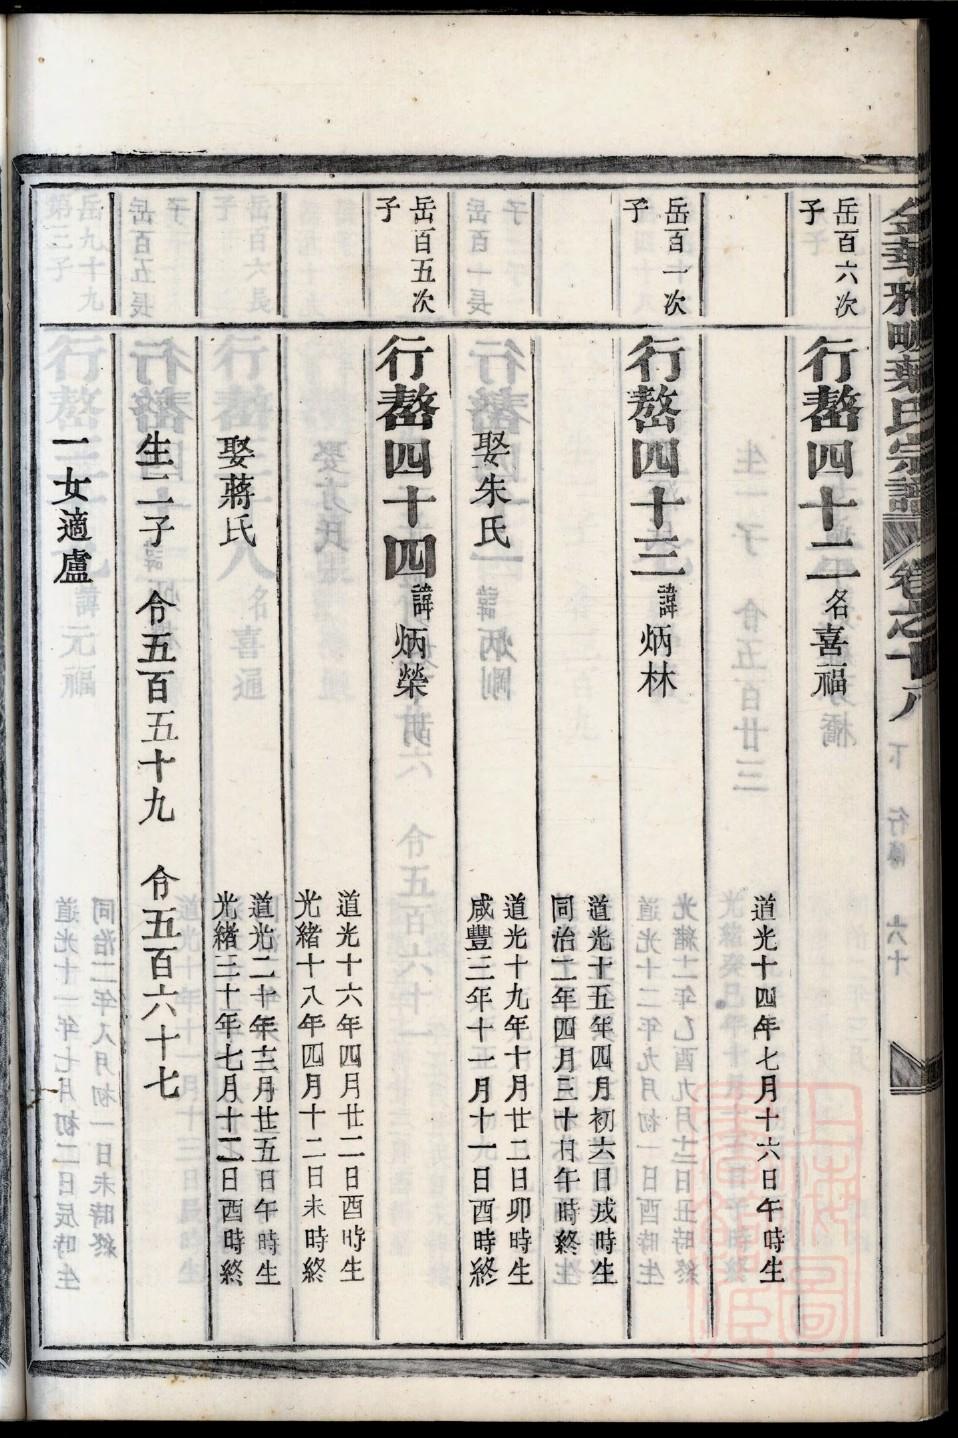 金華雅畈葉氏宗譜
卷之十八
下
行傳
六十
岳百六次
子
行嶅四十二名喜福
道光十四年七月十六日午時生
岳百一次
子
行嶅四十三諱炳林
道光十五年四月初六日戌時生
同治二年四月三十日午時終
娶朱氏
道光十九年十月廿二日卯時生
咸豐三年十一月十一日酉時終
岳百五次
子
行嶅四十四諱炳榮
道光十六年四月廿二日酉時生
光緒十八年四月十二日未時終
娶蔣氏
道光二十年三月廿五日午時生
光緒三十年七月十二日酉時終
生二子 令五百五十九 令五百六十七
一女適盧